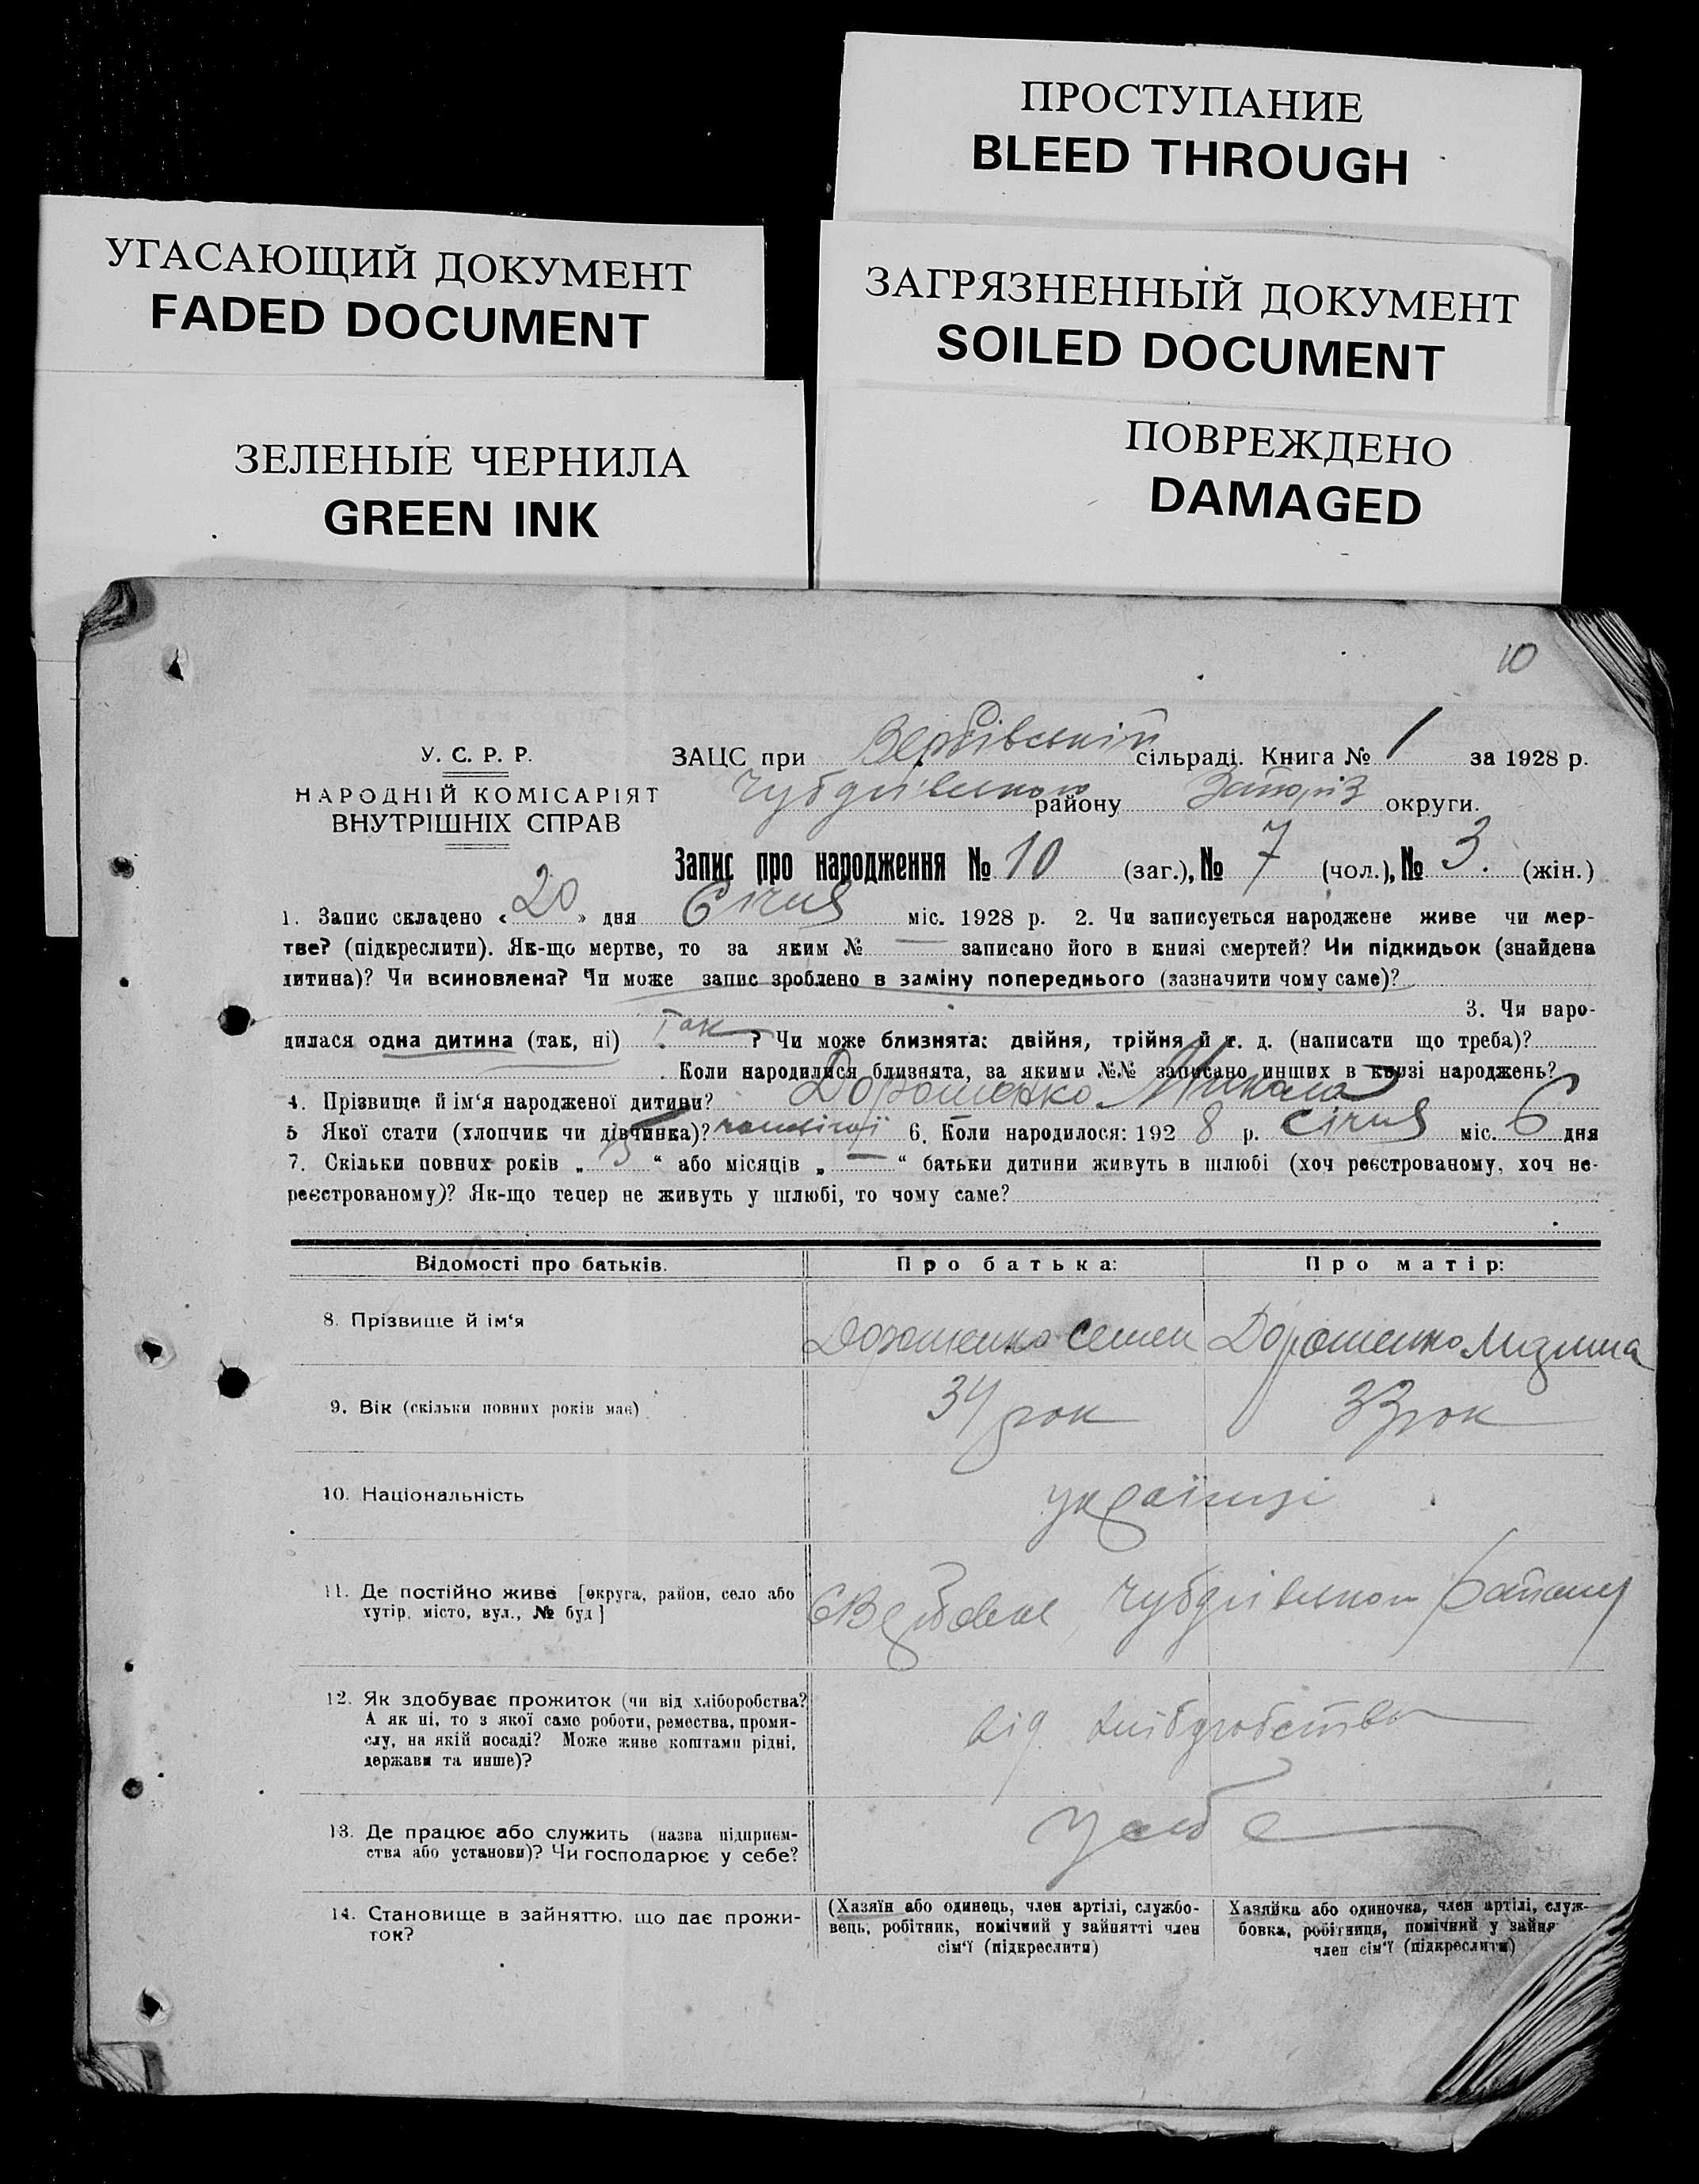 ПРОСТУПАНИЕ
BLEED THROUGH
УГАСАЮЩИЙ ДОКУМЕНТ
FADED DOCUMENT
ЗАГРЯЗНЕННЫЙ ДОКУМЕНТ
SOILED DOCUMENT
ЗЕЛЕНЫЕ ЧЕРНИЛА
GREEN INK
ПОВРЕЖДЕНО
DAMAGED
10
У. С. Р. Р.
НАРОДНІЙ КОМІСАРІЯТ
ВНУТРІШНІХ СПРАВ
ЗАЦС при Вербівській сільраді. Книга № 1 за 1928 р.
району Запоріз округи.
Запис про народження № 10 (заг.), № 7 (чол.), № 3. (жін.)
1. Запис складено « 20 » дня Січня міс. 1928 р. 2. Чи записується народжене живе чи мер-
тве? (підкреслити). Як-що мертве, то за яким № — записано його в книзі смертей? Чи підкидьок (знайдена
дитина)? Чи всиновлена? Чи може запис зроблено в заміну попереднього (зазначити чому саме)?
3. Чи наро-
дилася одна дитина (так, ні) Так ? Чи може близнята: двійня, трійня й т. д. (написати що треба)?
Коли народилися близнята, за якими №№ записано инших в книзі народжень?
4. Прізвище й ім'я народженої дитини? Дорошенко Микола
5 Якої стати (хлопчик чи дівчинка)? 6. Коли народилося: 192 8 р. Січня міс. 6 дня
7. Скільки повних років „ 15 “ або місяців „ — “ батьки дитини живуть в шлюбі (хоч реєстрованому, хоч не-
реєстрованому)? Як-що тепер не живуть у шлюбі, то чому саме?
Відомості про батьків. Про батька: Про матір:
8. Прізвище й ім'я Дорошенко Семен Дорошенко
9. Вік (скільки повних років має) 34 рок 33 рок
10. Національність українці
11. Де постійно живе [округа, район, село або
хутір, місто, вул., № буд]
району
12. Як здобуває прожиток (чи від хліборобства?
А як ні, то з якої само роботи, ремества, проми-
слу, на якій посаді? Може живе коштами рідні,
держави та инше)?
від хліборобства
13. Де працює або служить (назва підприєм-
ства або установи)? Чи господарює у себе?
У себе
14. Становище в зайняттю, що дає прожи-
ток?
(Хазяїн або одинець, член артілі, службо-
вець, робітник, помічний у зайнятті член
сім'ї (підкреслити)
Хазяйка або одиночка, член артілі, служ-
бовка, робітниця, помічний у зайня
член сім'ї (підкреслити)